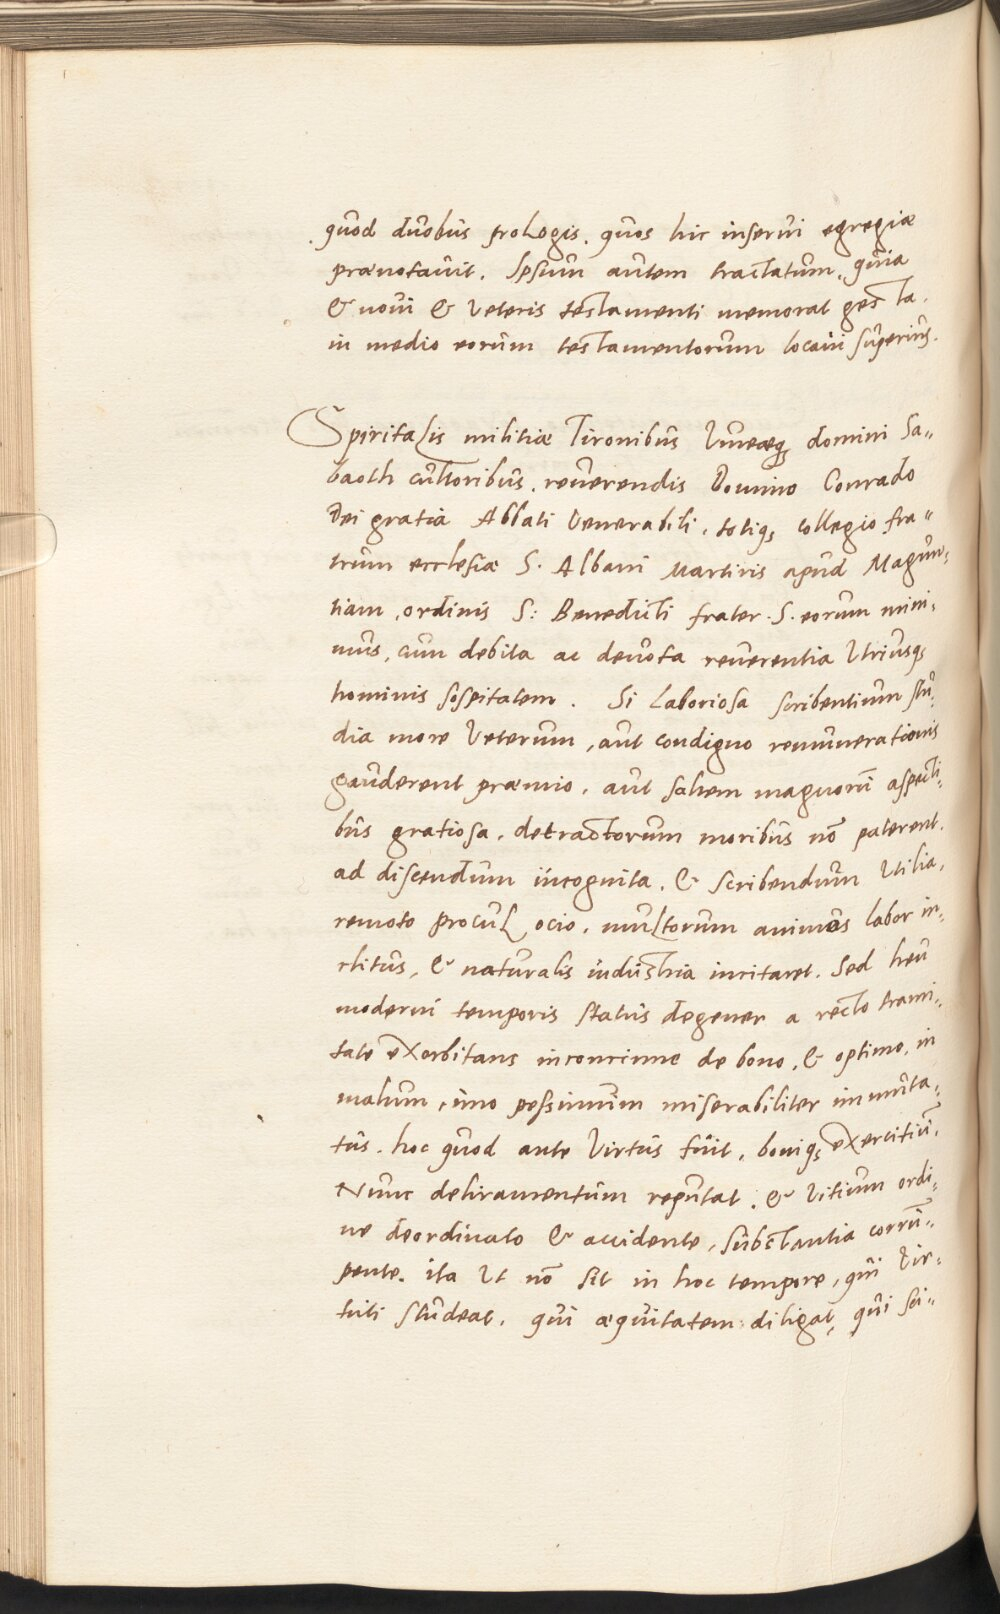 quod duobus prologis, quos hic inserui egregiæ
prænotauit. Ipsum autem tractatum, quia
& noui & Veteris testamenti memorat gesta,
in medio eorum testamentorum locaui superius.
Spiritalis militiæ Tironibus Vineæq; domini Sa„
baoth cultoribus, reuerendis Domino Conrado
Dei gratia Abbati Venerabili, totiq; collegio fra„
trum ecclesiæ S. Albani Martiris apud Magun„
tiam, ordinis S: Benedicti frater. S. eorum mini„
mus, cum debita ac deuota reuerentia Vtriusq;
hominis sospitatem. Si Laboriosa scribentium stu„
dia more Veterum, aut condigno remunerationis
gauderent præmio, aut saltem magnorū aspecti„
bus gratiosa, detractorum moribus nō paterent,
ad discendum incognita, & scribendum Vtilia,
remoto procul ocio, multorum animos labor in„
clitus, & naturalis industria incitaret. Sed heu
moderni temporis status degener a recto trami„
tate exorbitans inconcinne de bono, & optimo, in
malum, imo pessimum miserabiliter immuta„
tus, hoc quod ante Virtus fuit, boniq; exercitiū,
Nunc deliramentum reputat, & Vitium ordi„
ne deordinato & accidente, substantia corrū„
pente. ita Vt nō sit in hoc tempore, qui Vir„
tuti studeat, qui æquitatem diligat, qui sci„